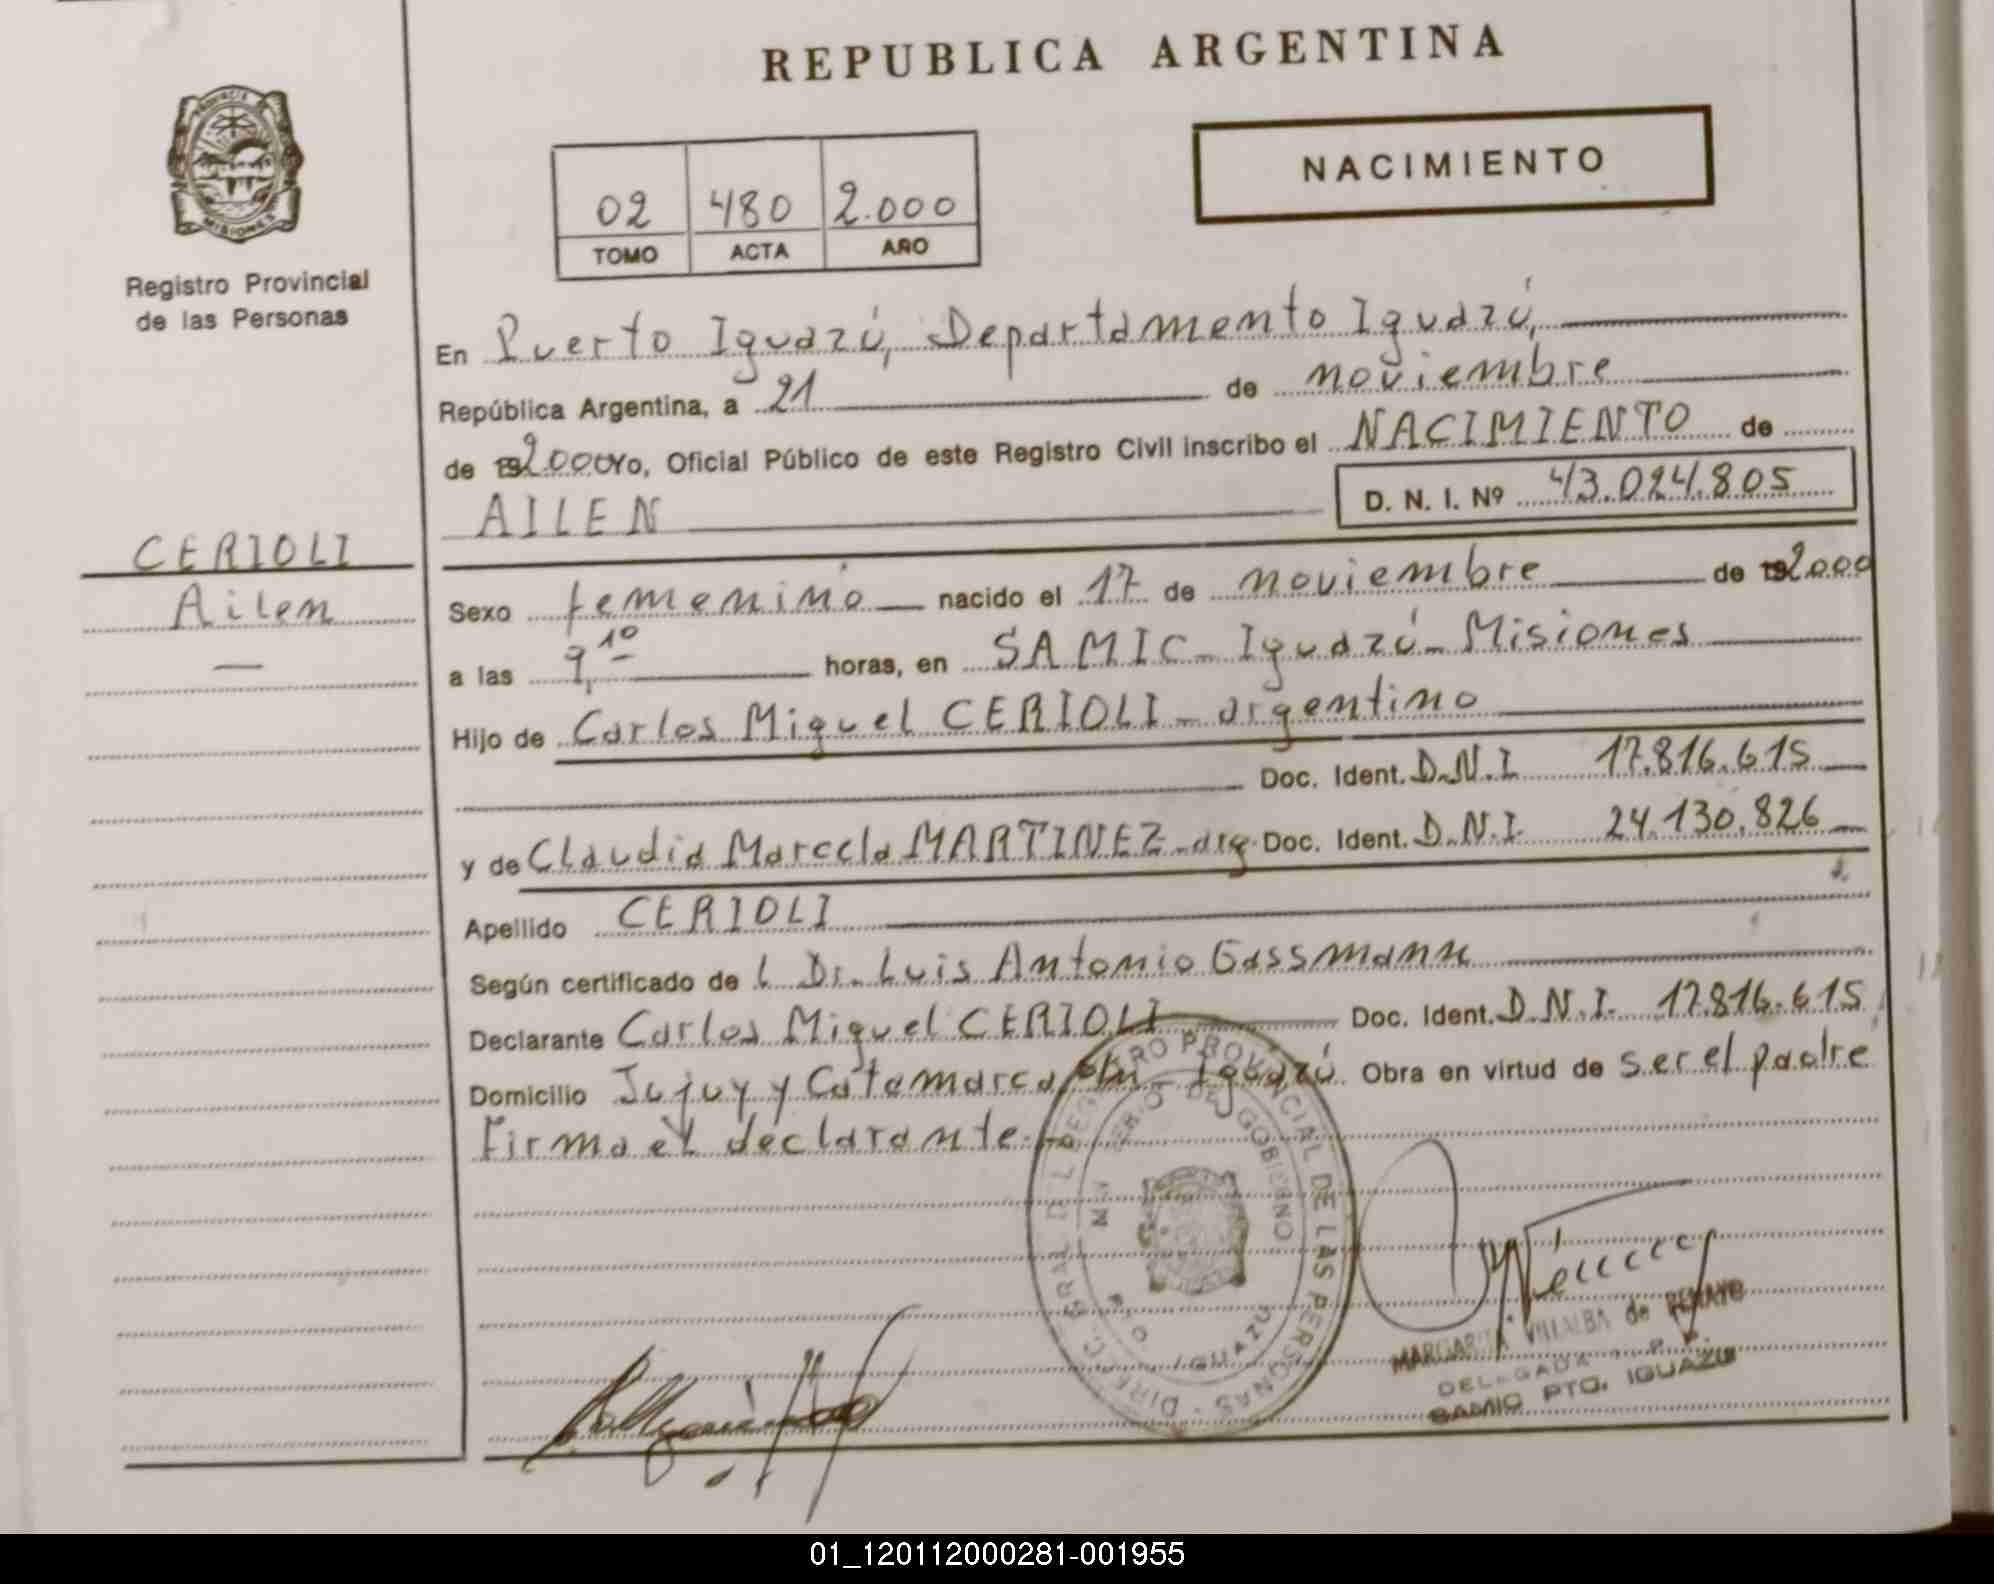 REPUBLICA ARGENTINA
PROVINCIA DE
MISIONES
Registro Provincial
de las Personas
NACIMIENTO
02 480 2.000
TOMO ACTA AÑO
En Puerto Iguazú, Departamento Iguazú,
República Argentina, a 21 de noviembre
de 192000 Yo, Oficial Público de este Registro Civil inscribo el NACIMIENTO de
AILEN D. N. I. Nº 43.024.805
CERIOLI
Ailen
Sexo femenino nacido el 17 de noviembre de 192000
a las 9,10 horas, en SAMIC - Iguazú - Misiones
Hijo de Carlos Miguel CERIOLI - argentino
Doc. Ident. D.N.I 17.816.615
y de Claudia Marcela MARTINEZ - arg. Doc. Ident. D.N.I. 24.130.826
Apellido CERIOLI
Según certificado de l Dr. Luis Antonio Gassmann
Declarante Carlos Miguel CERIOLI Doc. Ident. D.N.I. 17.816.615
Domicilio Jujuy y Catamarca, Pto - Iguazú Obra en virtud de ser el padre
Firma el declarante.-
DIREC. GRAL. DEL REGISTRO PROVINCIAL DE LAS PERSONAS
MINISTERIO DE GOBIERNO
IGUAZU
MARGARITA VILLALBA de
DELEGADA R. P.
SAMIC PTO. IGUAZU
01_120112000281-001955